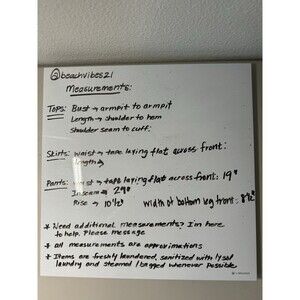 @beachvibes21
Measurements:
Tops: Bust → armpit to armpit
Length → shoulder to hem
Shoulder seam to cuff:
Skirts: Waist → tape laying flat across front:
Length →
Pants: Waist → tape laying flat across front: 19"
Inseam → 29"
Rise → 10 1/2" Width of bottom leg front: 8 1/2"
* Need additional measurements? I'm here
to help. Please message
* All measurements are approximations
* Items are freshly laundered, sanitized with lysol
laundry and steamed longed whenever possible.